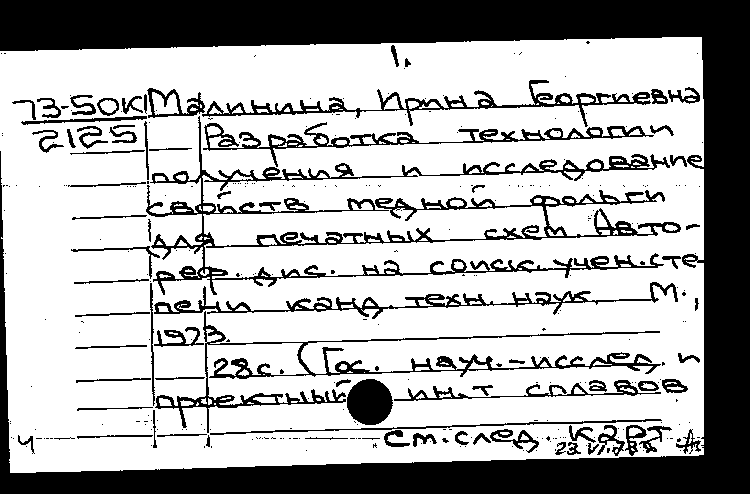 1.
73-50К Малинина, Ирина Георгиевна
2125 Разработка технологии
получения и исследование
свойств медной фольги
для печатных схем. Авто-
реф. дис. на соиск. учен. сте-
пени канд. техн. наук. М.,
1973.
28с. (Гос. науч.-исслед. и
проектный ин.т сплавов
см. след. карт
ч